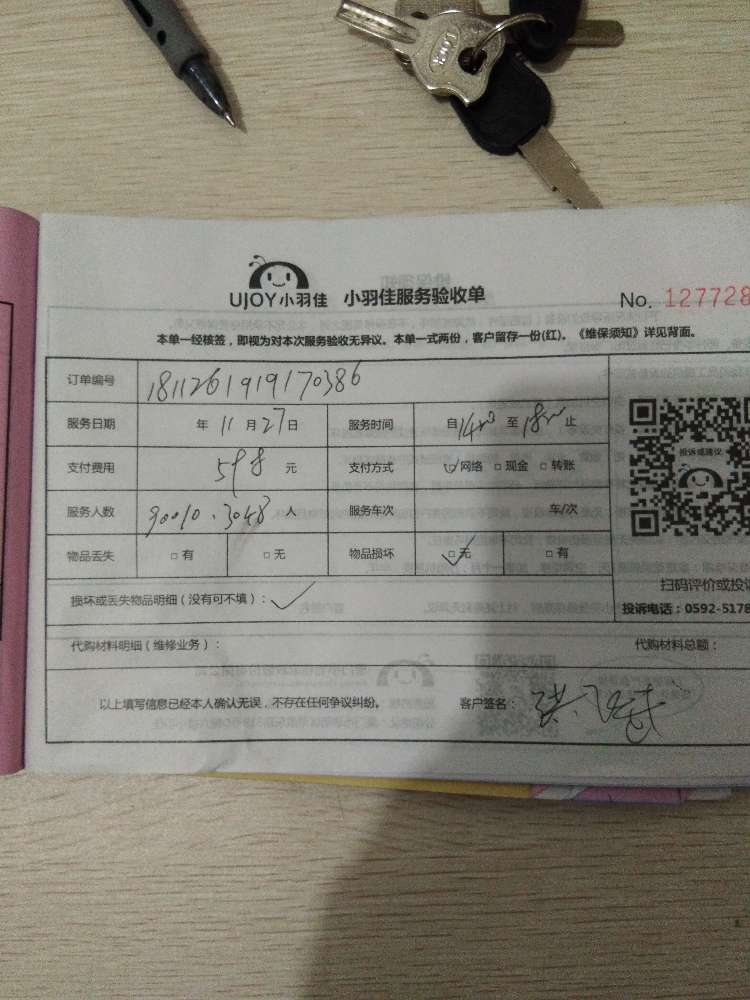 UJOY小羽佳 小羽佳服务验收单 No. 127728
本单一经核签，即视为对本次服务验收无异议。本单一式两份，客户留存一份(红)。《维保须知》详见背面。
订单编号 1811261919170386
服务日期 年 11 月 27 日 服务时间 自 14:00 至 18:00 止
支付费用 598 元 支付方式 ☑网络 □现金 □转账
服务人数 90010、3048 人 服务车次 车/次
物品丢失 □有 □无 物品损坏 ☑无 □有
投诉或建议
扫码评价或投诉
损坏或丢失物品明细（没有可不填）： ✓
投诉电话：0592-5178
代购材料明细（维修业务）： 代购材料总额：
以上填写信息已经本人确认无误，不存在任何争议纠纷。 客户签名：